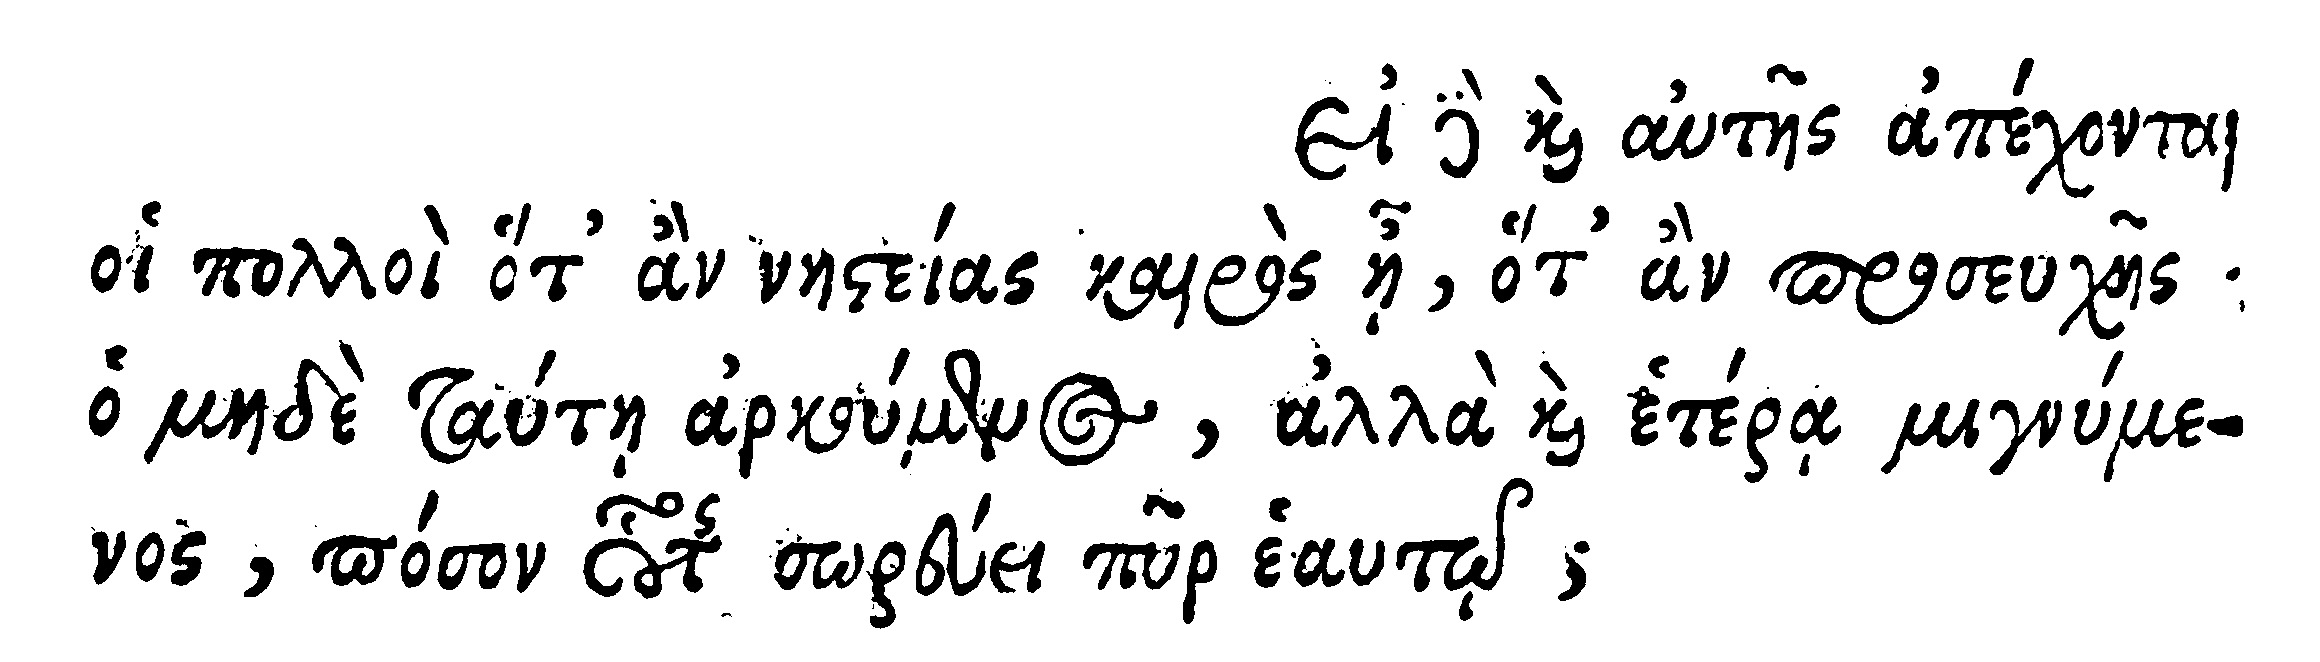 Εἰ δὲ καὶ αὐτῆς ἀπέχονται
οἱ πολλοὶ ὅτ' ἂν νηστείας καιρὸς ᾖ, ὅτ' ἂν προσευχῆς ·
ὁ μηδὲ ταύτῃ ἀρκούμενος, ἀλλὰ καὶ ἑτέρᾳ μιγνύμε-
νος, πόσον οὗτος σωρεύει πῦρ ἑαυτῷ ;